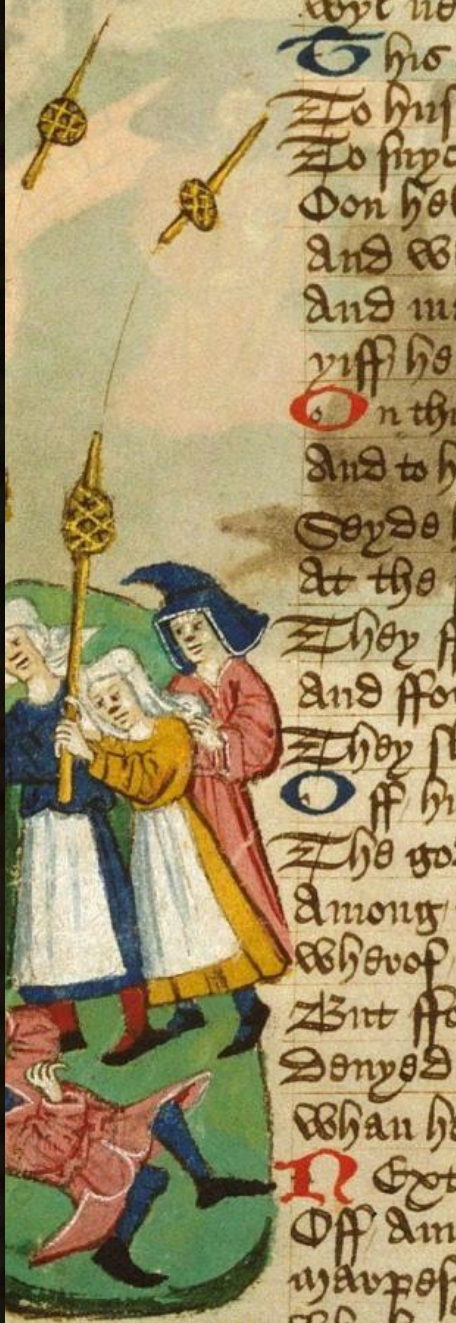 This
To hus
To
Oon he
And w
And m
yiff he
On thi
And to h
Seyde h
At the
They ff
And ffo
They s
Off hi
The go
Among
wherof
But ffo
Denyed
whan h
Next
Off Am
marpes